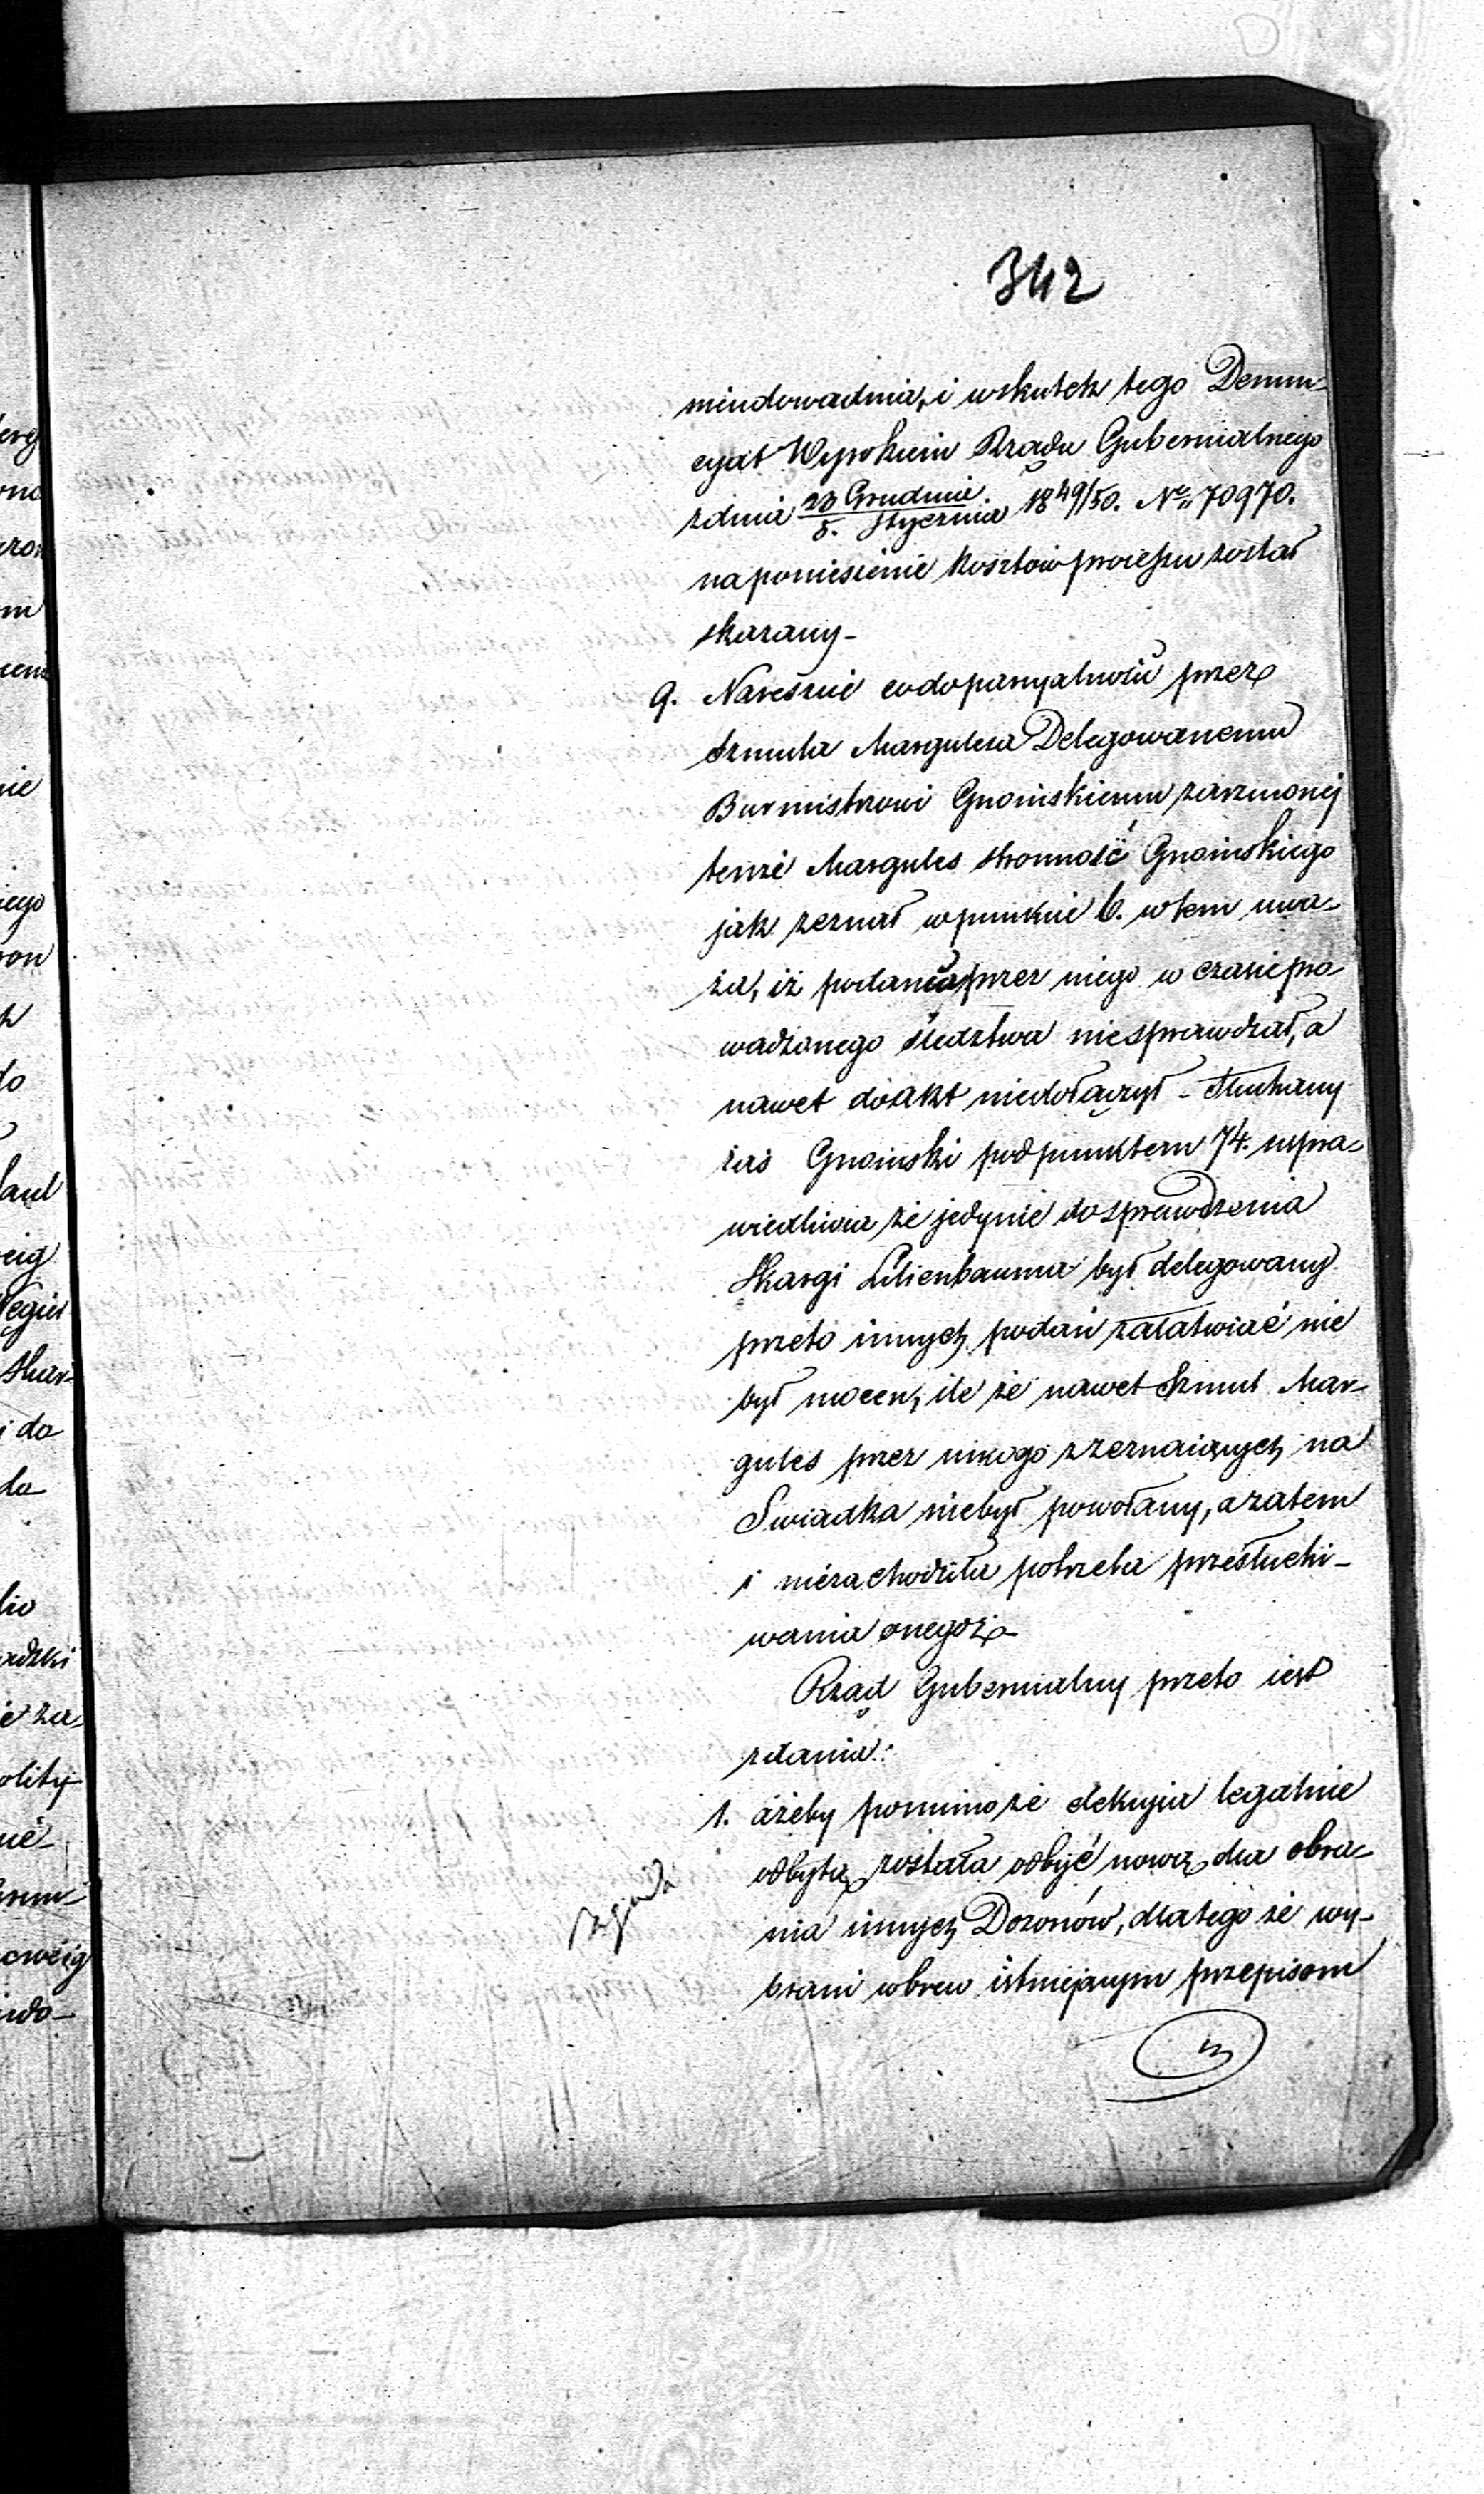 342
mieudowadnia, i wskutek tego Denun-
cyat Wyrokiem Rządu Gubernialnego
zdnia 23 Grudnia / 5. Stycznia 1849/50. No 70970.
naponiesienie kosztów processu został
skazany –
9. Nareszcie codoparcyalności przez
Szmula Margulesa Delegowanemu
Burmistrzowi Gnoinskiemu zarzuconej
tenże Margules stronność Gnoinskiego
jak zeznał wpunkcie 6. wtem uwa-
ża, iż podania przez niego w czasie pro-
wadzonego śledztwa niesprawdzał, a
nawet doakt niedołączył – Słuchany
zaś Gnoinski podpunktem 74. uspra-
wiedliwia że jedynie dosprawdzenia
Skargi Lilienbauma był delegowany
przeto innych podań załatwiać nie
był mocen, ile że nawet Szmul Mar-
gules przez nikogo zzeznaiących na
Swiadka niebył powołany, azatem
i niezachodziła potrzeba przesłuchi-
wania onegoż –
Rząd Gubernialny przeto iest
zdania:
1. ażeby pomimo że elekcyia legalnie
odbytą została odbyć nową dla obra-
nia innych Dozorów, dlatego że wy-
brani wbrew istniejącym przepisom